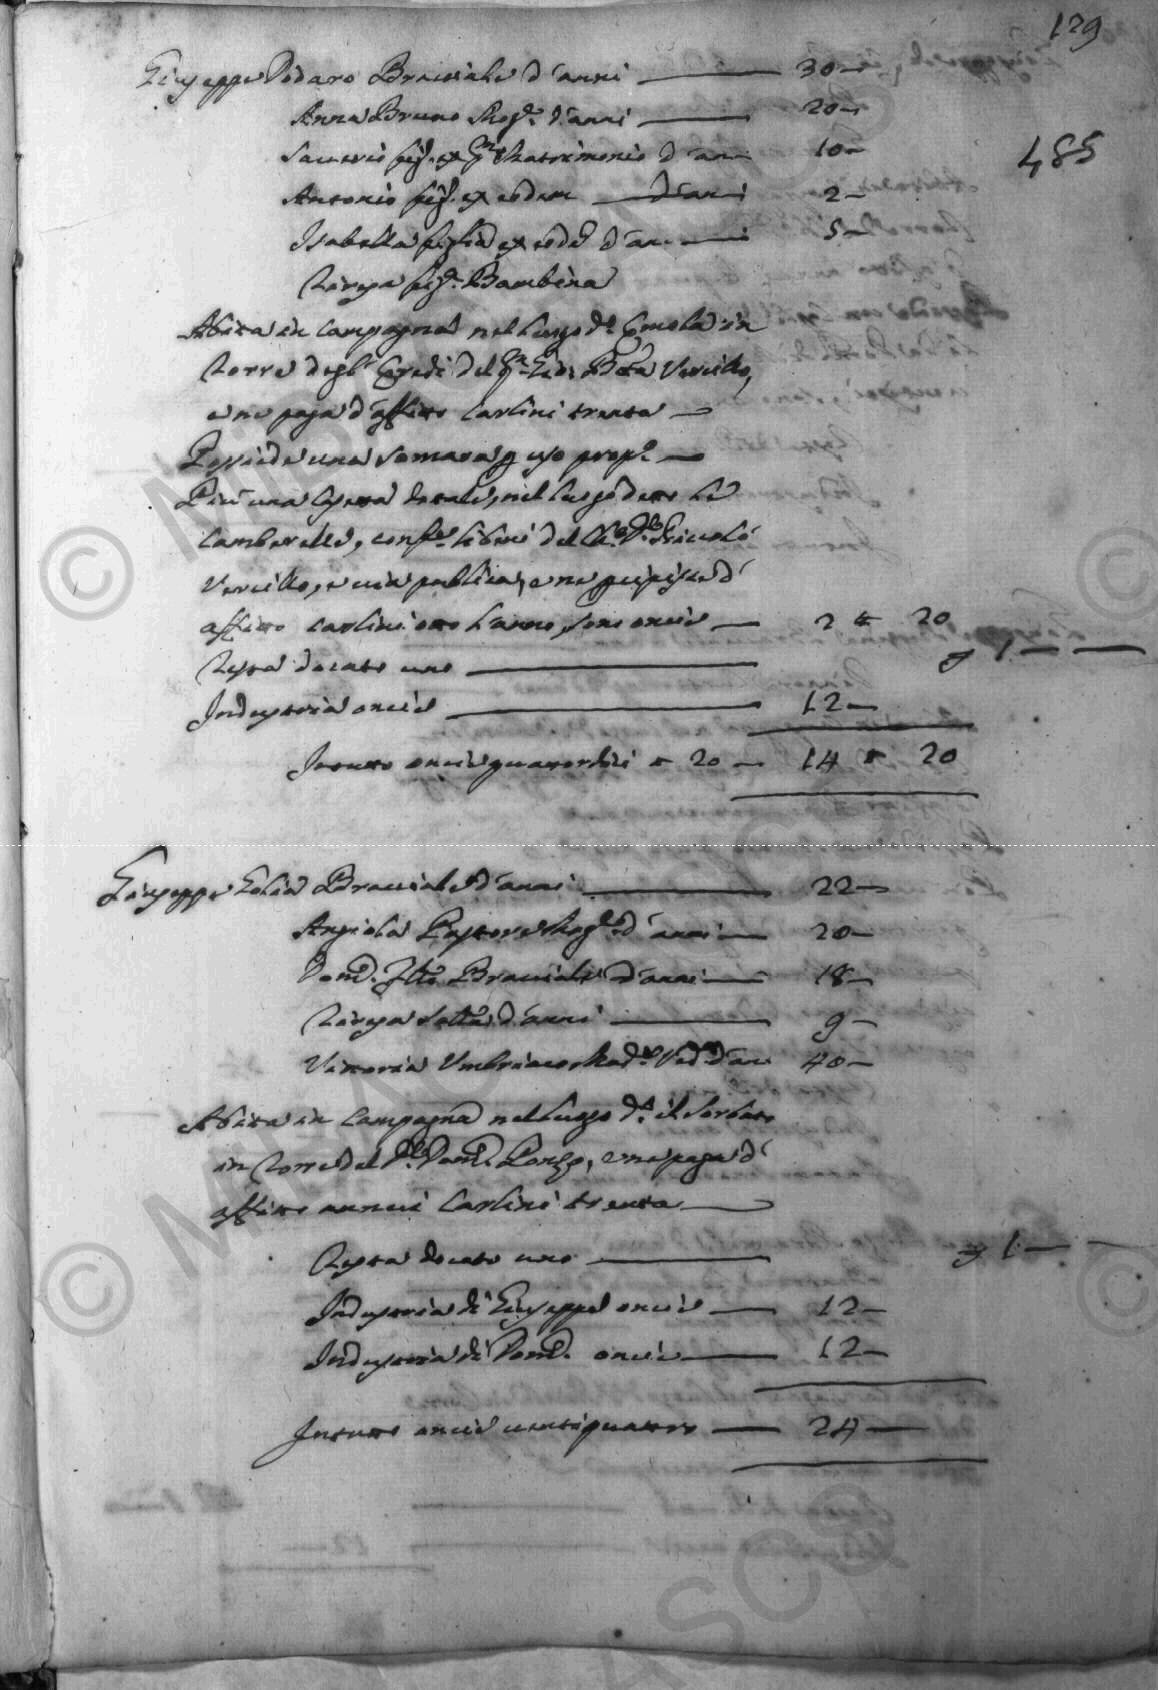 129
485
Giuseppe Podaro Bracciale d'anni 30
Anna Bruno Mog.e d'anni 20
Saverio fig.o ex p.mo Matrimonio d'an. 10
Antonio fig.o ex eodem d'anni 2
Isabella figlia ex eod.e d'an. 5
Teresa fig.a Bambina
Abita in campagna nel luogo d.o in
torre degl'Eredi del q.m Vercillo,
e ne paga d'affitto carlini trenta
Possiede una somara p uso prop.o
Più una dotale, nel luogo detto le
Camberelle, conf.e li beni del Nicolò
Vercillo, e via publica, e ne d'
affitto carlini otto l'anno, sono oncie 2 20
Testa docato uno 1
Industria oncie 12
In tutto oncie quattordici 20 14 20
Giuseppe Tolia Bracciale d'anni 22
Angiola Pastore Mog.e d'anni 20
Dom.o F.llo Bracciale d'anni 18
Teresa Sorella d'anni 9
Vittoria Umbriaco Mad.e Ved.a d'an 40
Abita in campagna nel luogo d.o il Sorbato
in torre del Dom.o Longo, e ne paga d'
affitto annui carlini trenta
Testa docato uno 1
Industria di Giuseppe oncie 12
Industria di Dom.o oncie 12
In tutto oncie ventiquattro 24